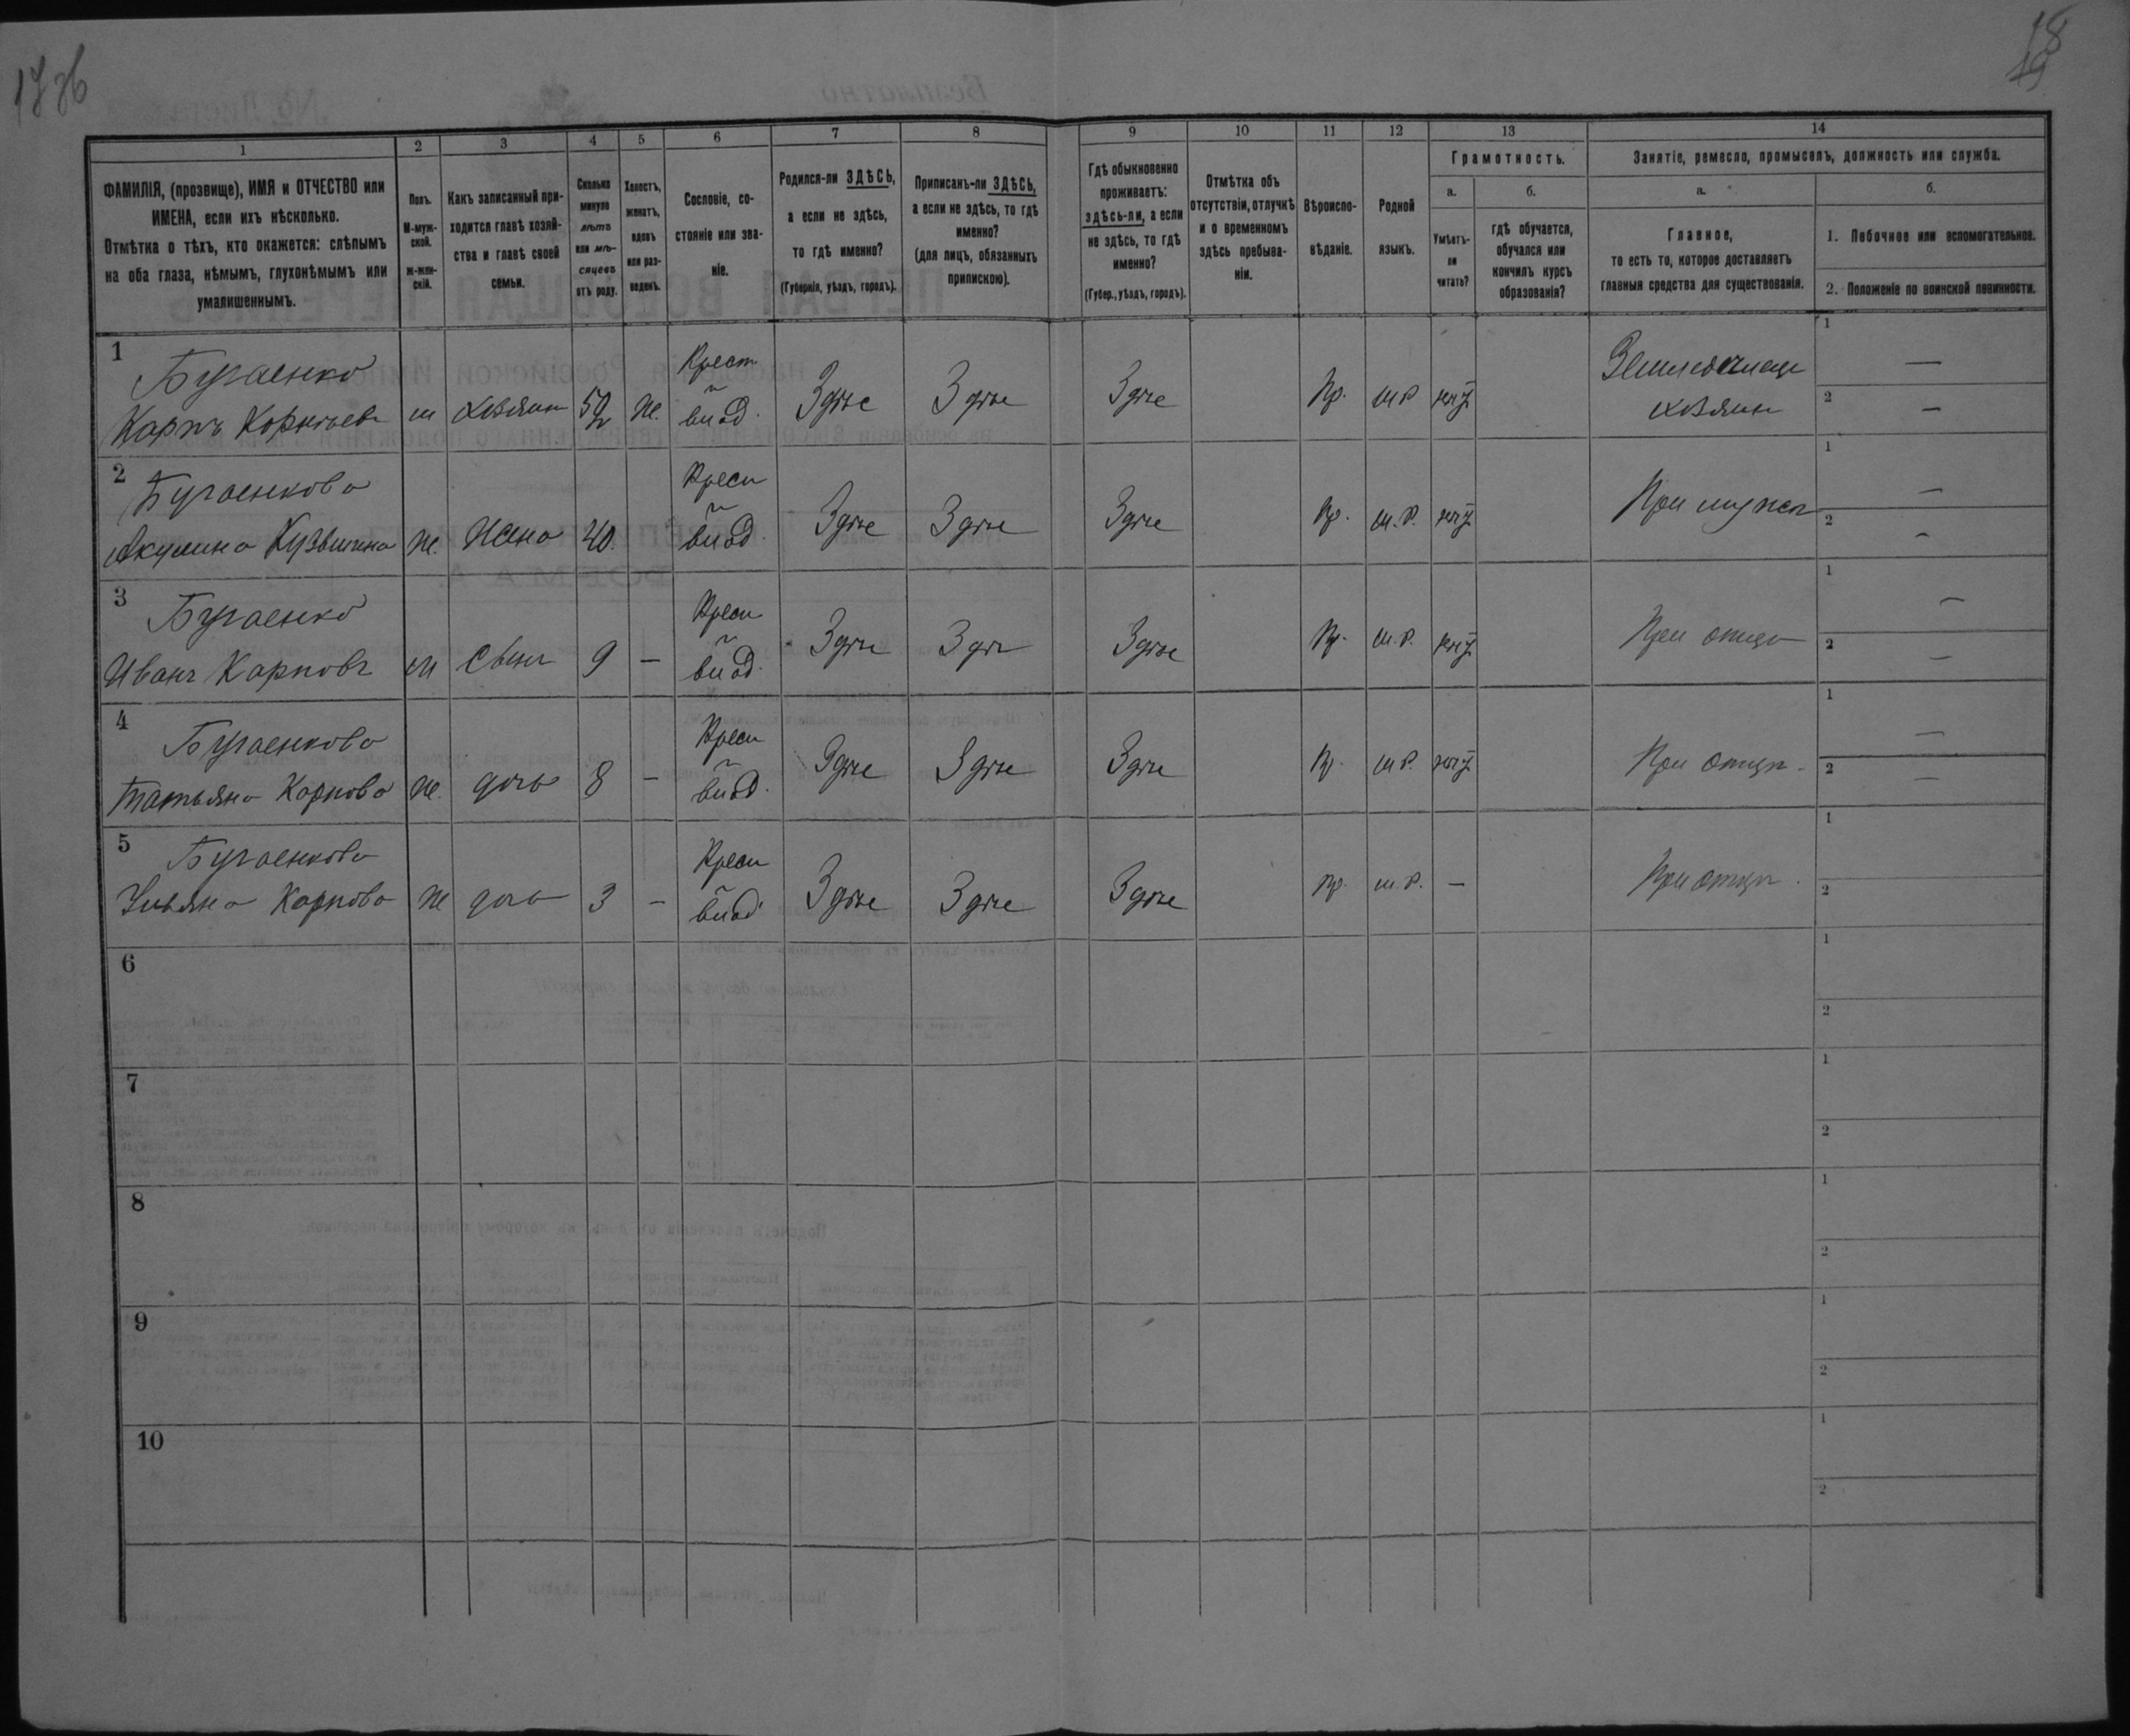 17 зб
18
19
1
2
3
4
5
6
7
8
9
10
11
12
13
14
ФАМИЛІЯ, (прозвище), ИМЯ и ОТЧЕСТВО или
ИМЕНА, если ихъ нѣсколько.
Отмѣтка о тѣхъ, кто окажется: слѣпымъ
на оба глаза, нѣмымъ, глухонѣмымъ или
умалишеннымъ.
Полъ.
М-муж-
ской.
ж-жен-
скій.
Какъ записанный при-
ходится главѣ хозяй-
ства и главѣ своей
семьи.
Сколько
минуло
лѣтъ
или мѣ-
сяцевъ
отъ роду.
Холостъ,
женатъ,
вдовъ
или раз-
веденъ.
Сословіе, со-
стояніе или зва-
ніе.
Родился-ли ЗДѢСЬ,
а если не здѣсь,
то гдѣ именно?
(Губернія, уѣздъ, городъ).
Приписанъ-ли ЗДѢСЬ,
а если не здѣсь, то гдѣ
именно?
(для лицъ, обязанныхъ
припискою).
Гдѣ обыкновенно
проживаетъ:
здѣсь-ли, а если
не здѣсь, то гдѣ
именно?
(Губер., уѣздъ, городъ).
Отмѣтка объ
отсутствіи, отлучкѣ
и о временномъ
здѣсь пребыва-
ніи.
Вѣроиспо-
вѣданіе.
Родной
языкъ.
Грамотность.
а.
б.
Умѣетъ-
ли
читать?
гдѣ обучается,
обучался или
кончилъ курсъ
образованія?
Занятіе, ремесло, промыселъ, должность или служба.
а.
б.
Главное,
то есть то, которое доставляетъ
главныя средства для существованія.
1. Побочное или вспомогательное.
2. Положеніе по воинской повинности.
1
Бугаенко
Карпъ Корнѣевъ м хозяинъ 52 ж. Крест Здѣсе Здѣсе Здѣсе Пр. м.р.
хозяинъ
1 —
2 —
2
Бугаенкова
Акулина Кузьмина ж. Жена 40. Крест Здѣсе Здѣсе Здѣсе Пр. м.р. При мужѣ
1 —
2 —
3
Бугаенко
Иванъ Карповъ м сынъ 9 — Крест Здѣсе Здѣсе Здѣсе Пр. м.р. При отцѣ
1 —
2 —
4
Бугаенкова
Татьяна Карпова ж. дочь 8 — Крест Здѣсе Здѣсе Здѣсе Пр. м.р. При отцѣ.
1 —
2 —
5
Бугаенкова
Ульяна Карпова ж дочь 3 — Крест Здѣсе Здѣсе Здѣсе Пр. м.р. — При отцѣ.
1
2
6
1
2
7
1
2
8
1
2
9
1
2
10
1
2